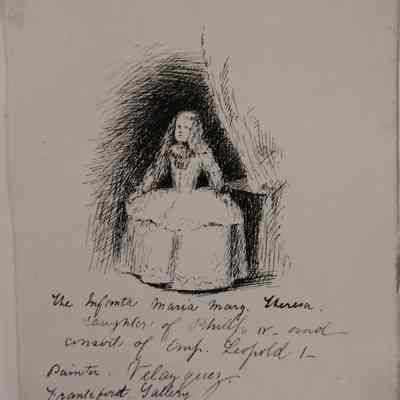 The Infanta Maria Marg. Theresa.
daughter of Philip IV - and
consort of Emp. Leopold I -
Painter. Velazquez.
Frankfort Gallery